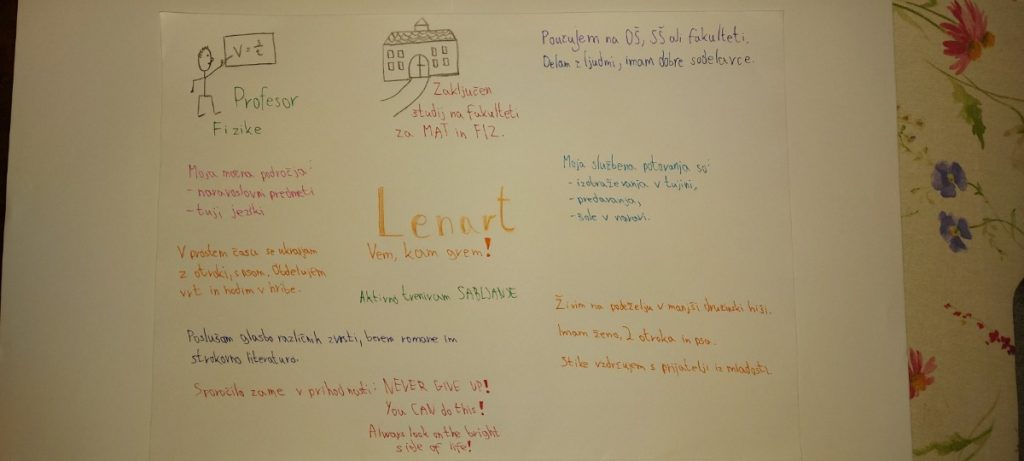 V = s/t
Profesor
Fizike
Zaključen
študij na fakulteti
za MAT in FIZ.
Poučujem na OŠ, SŠ ali fakulteti.
Delam z ljudmi, imam dobre sodelavce.
Moja močna področja:
- naravoslovni predmeti
- tuji jeziki
Lenart
Vem, kam grem!
Moja službena potovanja so:
- izobraževanja v tujini,
- predavanja,
- šole v naravi.
V prostem času se ukvarjam
z otroki, s psom. Obdelujem
vrt in hodim v hribe.
Aktivno treniram SABLJANJE
Živim na podeželju v manjši družinski hiši.
Imam ženo, 2 otroka in psa.
Stike vzdržujem s prijatelji iz mladosti.
Poslušam glasbo različnih zvrsti, berem romane in
strokovno literaturo.
Sporočilo zame v prihodnosti: NEVER GIVE UP!
You CAN do this!
Always look on the bright
side of life!